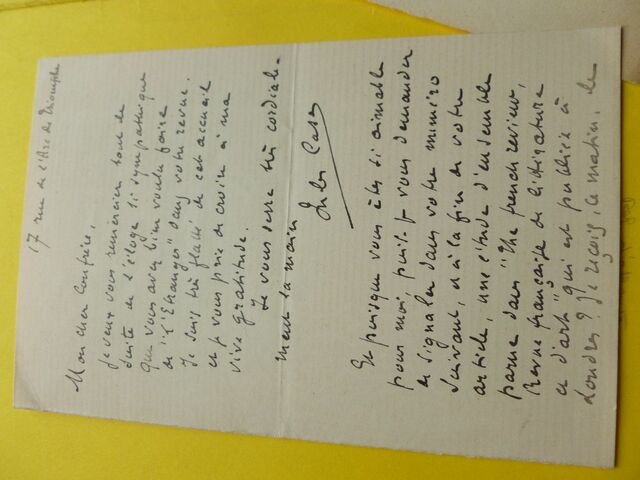 17 rue de l'Arc de Triomphe
Mon cher Confrère,
Je veux vous remercier tout de
suite de l'éloge si sympathique
que vous avez bien voulu faire
de "l'Etranger" dans votre revue.
Je suis très flatté de cet accueil
et vous prie de croire à ma
vive gratitude.
Je vous serre très cordiale-
ment la main
Jules Case
Et puisque vous êtes si aimable
pour moi, puis-je vous demander
de signaler dans votre numéro
suivant, à la fin de votre
article, une étude d'ensemble
parue dans "The french review,
Revue française de littérature
et d'art" qui est publiée à
Londres? Je reçois, le matin, de